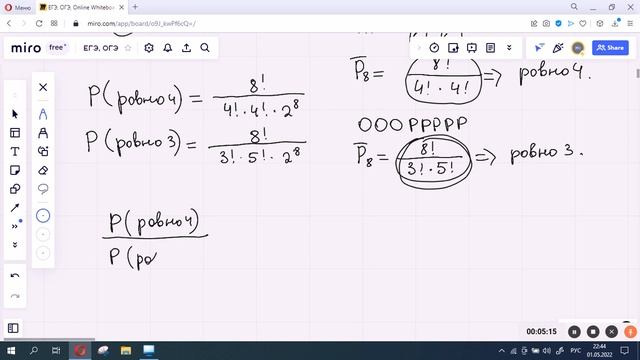 Меню
ЕГЭ, ОГЭ: Online Whiteboard
miro.com/app/board/o9J_kwPf6cQ=/
miro free ЕГЭ, ОГЭ
Share
P(ровно 4) = 8! / (4! · 4! · 2^8)
P(ровно 3) = 8! / (3! · 5! · 2^8)
P̅8 = 8! / (4! · 4!) => ровно 4.
OOOPPPPP
P̅8 = 8! / (3! · 5!) => ровно 3.
P(ровно 4)
P(ро
00:05:15
РУС
22:44
01.05.2022